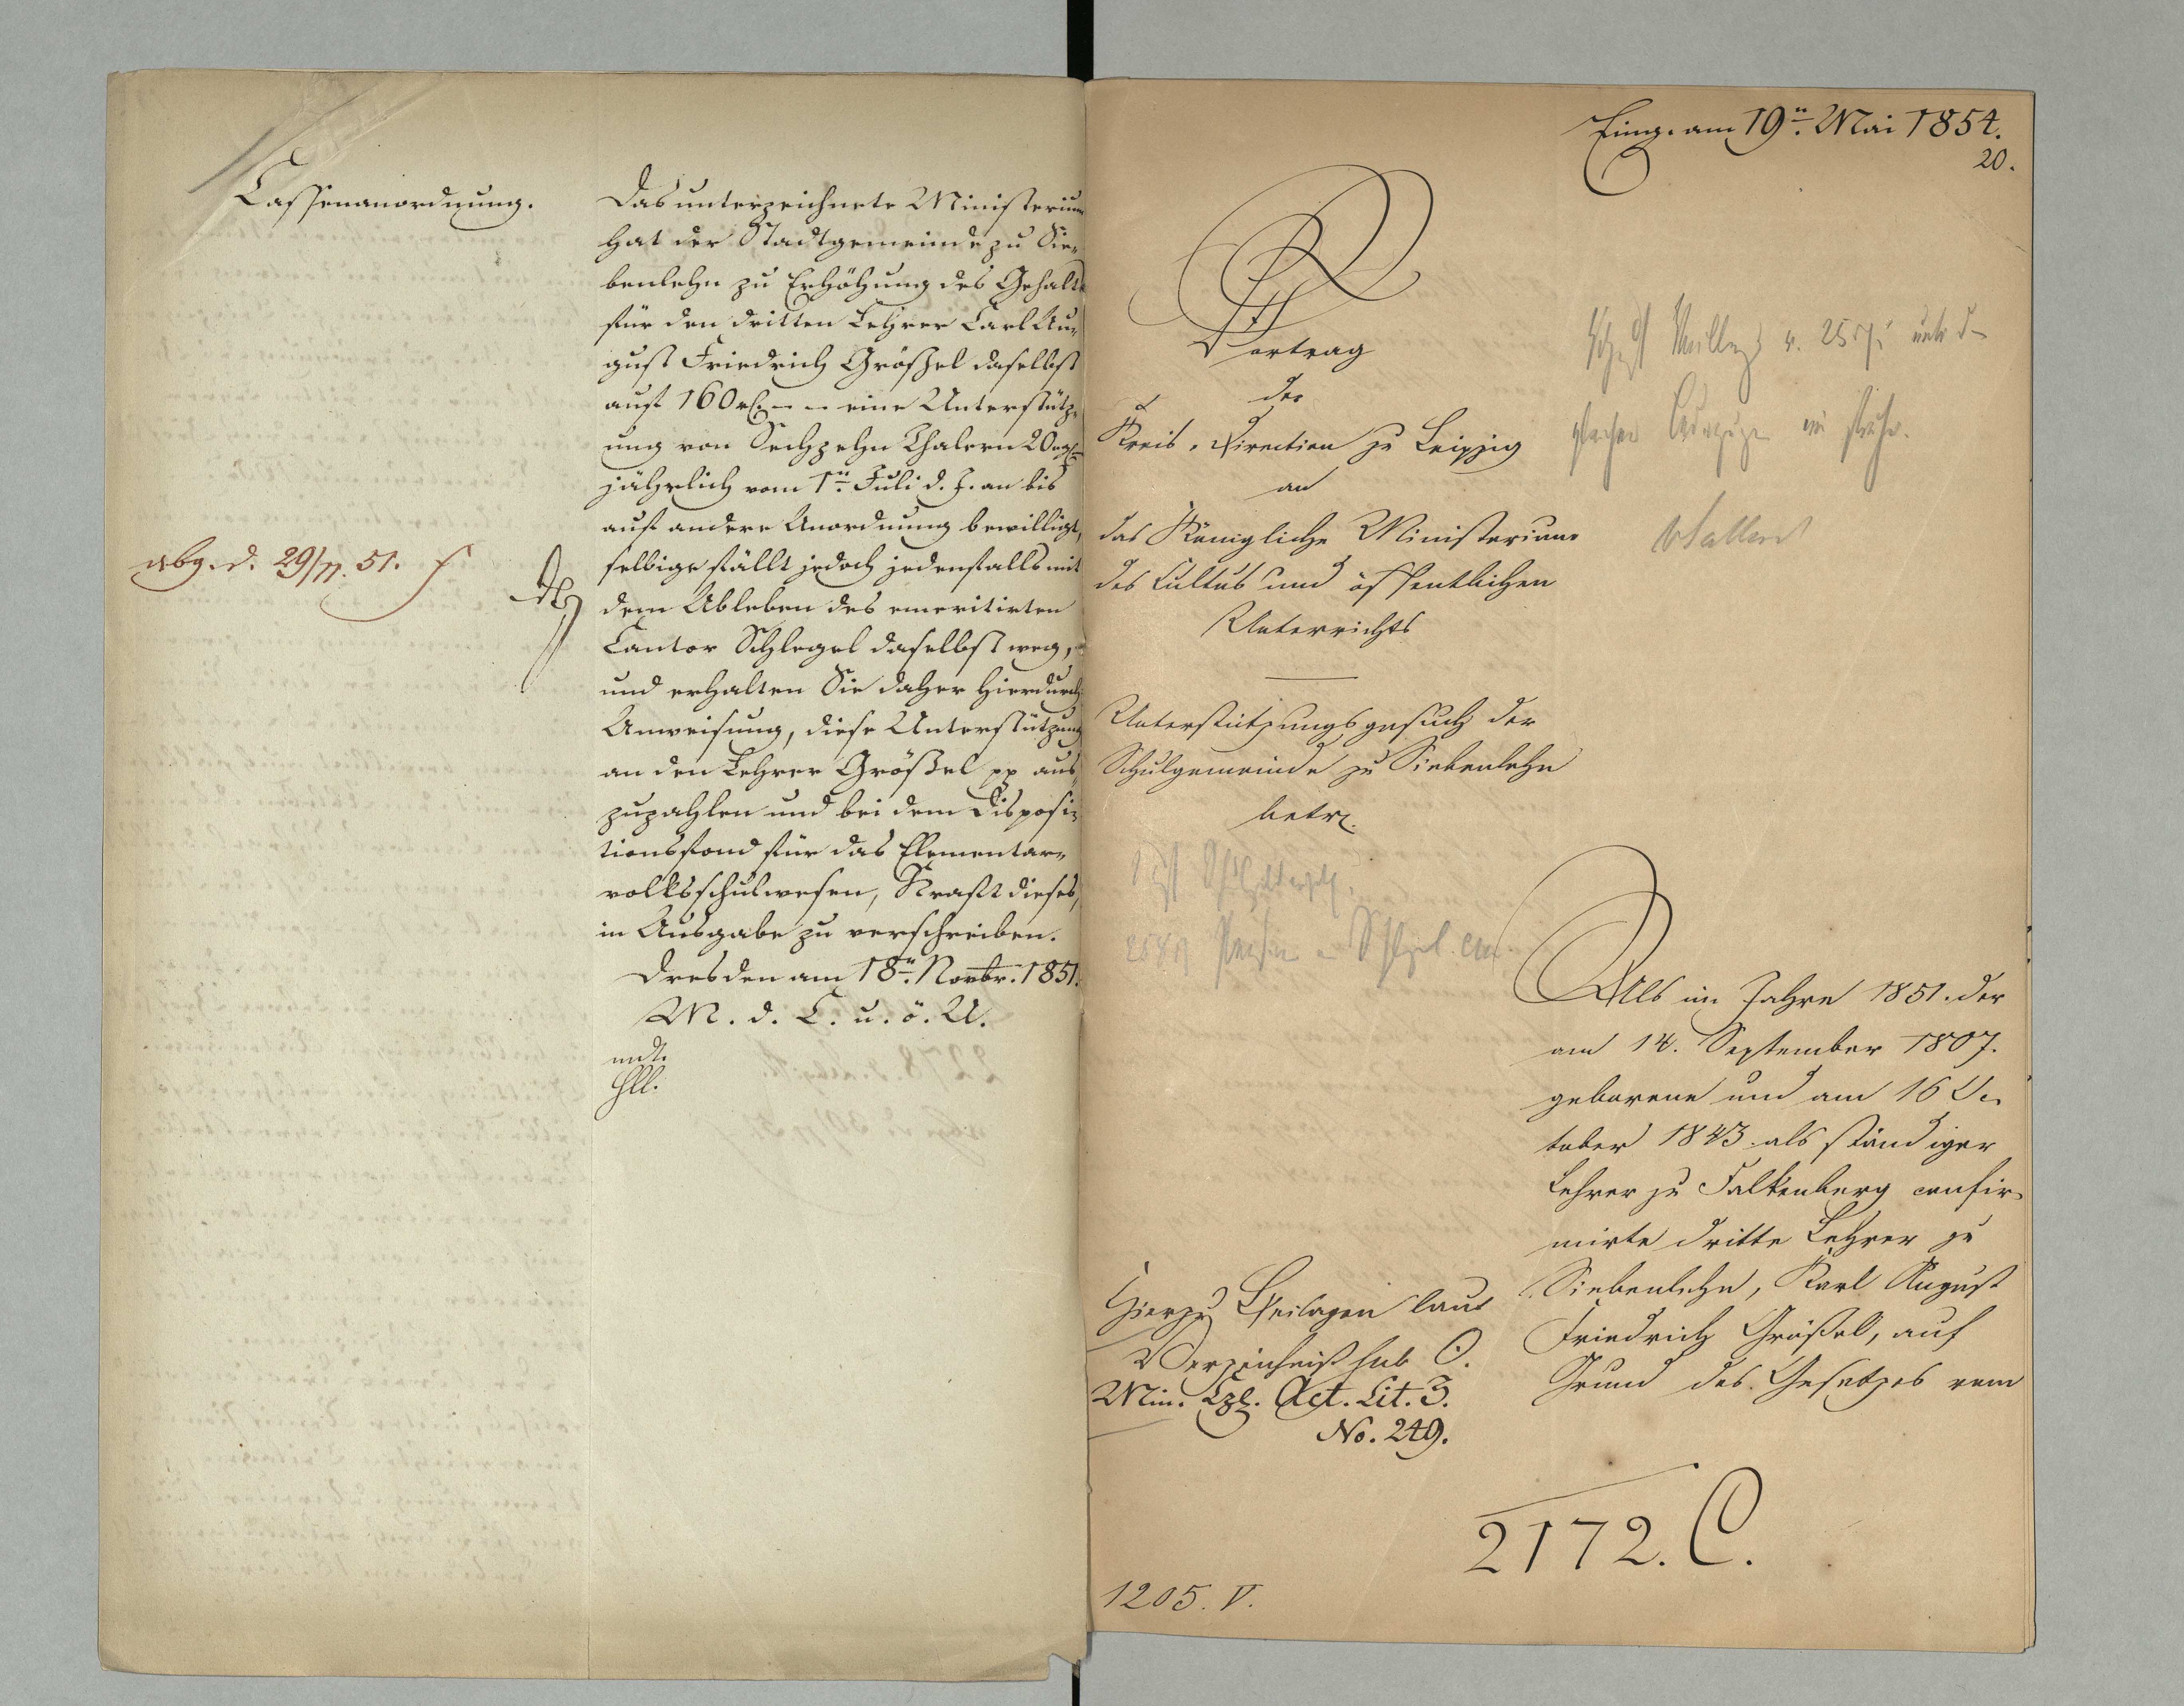 Cassenanordnung.
Das unterzeichnete Ministerium
hat der Stadtgemeinde zu Sie-
benlehn zu Erhöhung des Gehalts
für den dritten Lehrer Carl Au-
gust Friedrich Größel daselbst
auf 160 rℓ. – – eine Unterstütz-
ung von Sechzehn Thalern 20 ngl.
jährlich vom 1n. Juli d. J. an bis
auf andere Anordnung bewilligt,
selbige fällt jedoch jedenfalls mit
dem Ableben des emeritirten
Cantor Schlegel daselbst weg,
und erhalten Sie daher hierdurch
Anweisung, diese Unterstützung
an den Lehrer Größel pp aus-
zuzahlen und bei dem Disposi-
tionsfond für das Elementar-
volksschulwesen, Kraft dieses,
in Ausgabe zu verschreiben.
Dresden am 18n. Novbr. 1851.
M. d. C. u. ö. U.
mdt.
Hll.
abg. d. 29/11. 51.
Eing. am 19n. Mai 1854.
20.
Vortrag
der
Kreis-Direction zu Leipzig
an
das Königliche Ministerium
des Cultus und öffentlichen
Unterrichts
Unterstützungsgesuch der
Schulgemeinde zu Siebenlehn
betr.
Als im Jahre 1851. der
am 14. September 1807.
geborene und am 16 Oc-
tober 1843. als ständiger
Lehrer zu Falkenberg confir-
mirte dritte Lehrer zu
Siebenlehn, Karl August
Friedrich Größel, auf
Grund des Gesetzes vom
Hierzu Beilagen laut
Verzeichniß sub O.
Min. Czl. Act. Lit. 3.
No. 249.
2172. C.
1205. V.